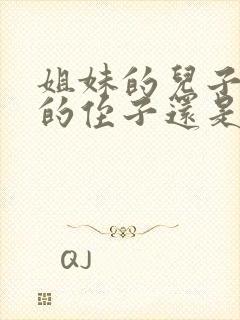 姐妹的兒子
的侄子還是
QJ